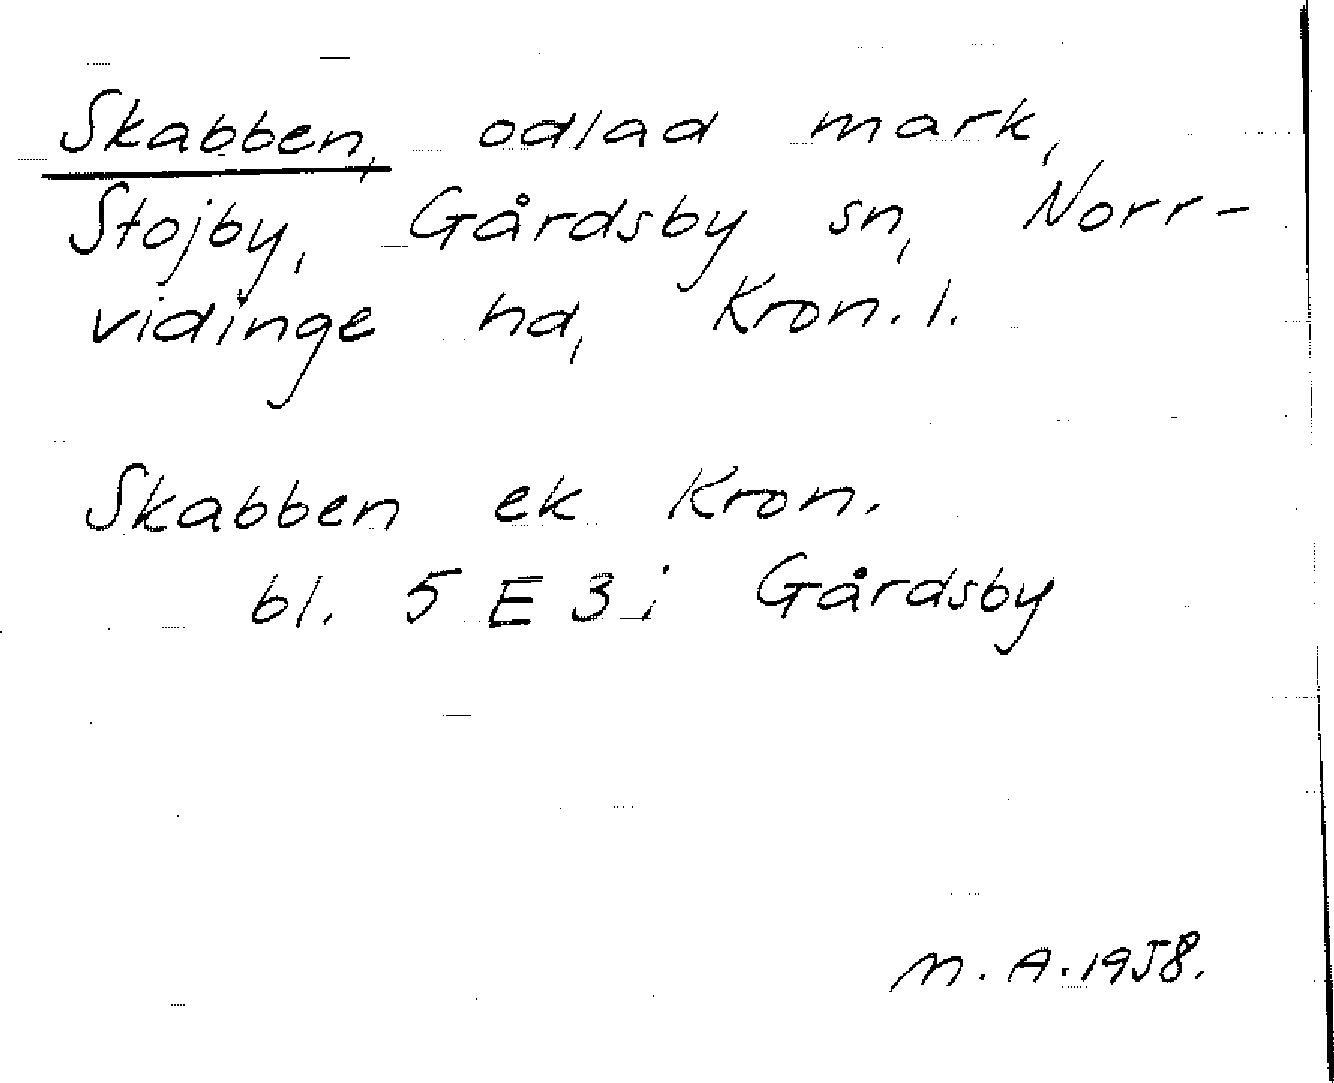 Skabben, odlad mark,
Stojby, Gårdsby sn, Norr-
vidinge hd, Kron. l.
Skabben ek Kron.
bl. 5 E 3 i Gårdsby
M. A. 1958.